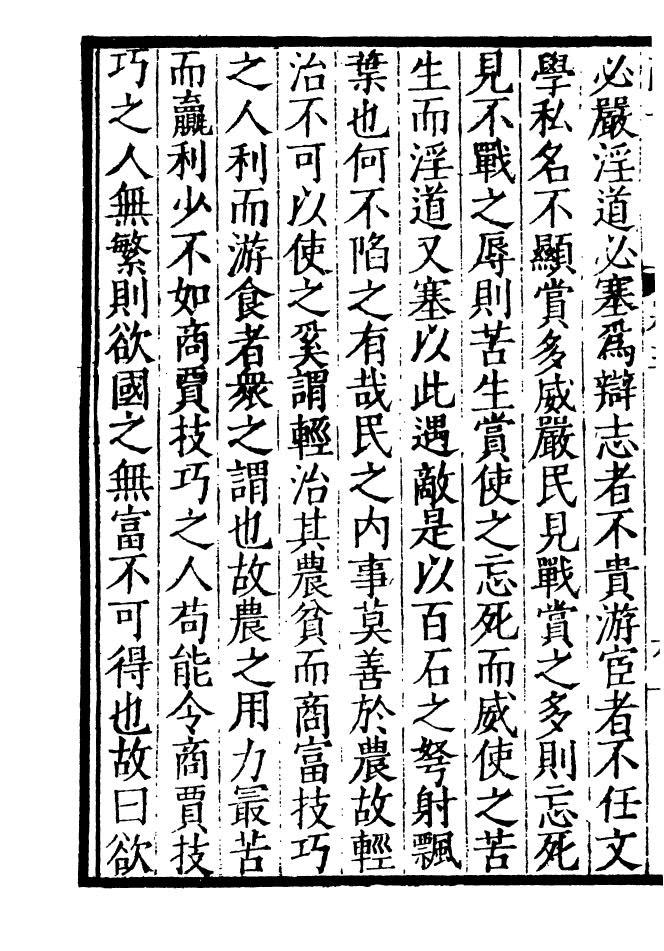 必嚴淫道必塞爲辯志者不貴游宦者不任文
學私名不顯賞多威嚴民見戰賞之多則忘死
見不戰之辱則苦生賞使之忘死而威使之苦
生而淫道又塞以此遇敵是以百石之弩射飄
葉也何不陷之有哉民之内事莫善於農故輕
治不可以使之奚謂輕治其農貧而商富技巧
之人利而游食者衆之謂也故農之用力最苦
而贏利少不如商賈技巧之人苟能令商賈技
巧之人無繁則欲國之無富不可得也故曰欲